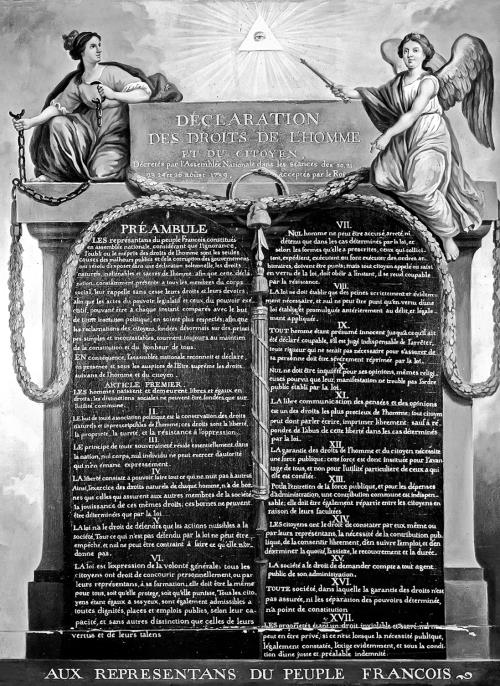 DÉCLARATION
DES DROITS DE L'HOMME
ET DU CITOYEN,
Décrétés par l'Assemblée Nationale dans les séances des 20, 21
23, 24 et 26 août 1789, acceptés par le Roi
PRÉAMBULE
LES représentans du peuple François, constitués
en assemblée nationale, considérant que l'ignorance,
l'oubli ou le mépris des droits de l'homme sont les seules
causes des malheurs publics et de la corruption des gouvernemens,
ont résolu d'exposer dans une déclaration solemnelle, les droits
naturels, inaliénables et sacrés de l'homme; afin que cette décla-
ration, constamment présente à tous les membres du corps
social, leur rappelle sans cesse leurs droits et leurs devoirs;
afin que les actes du pouvoir législatif et ceux du pouvoir exé-
cutif, pouvant être à chaque instant comparés avec le but
de toute institution politique, en soient plus respectés; afin que
les réclamations des citoyens, fondées désormais sur des princi-
pes simples et incontestables, tournent toujours au maintien
de la constitution et du bonheur de tous.
EN conséquence, l'assemblée nationale reconnoît et déclare,
en présence et sous les auspices de l'Être suprême les droits
suivans de l'homme et du citoyen.
ARTICLE PREMIER.
LES hommes naissent et demeurent libres et égaux en
droits; les distinctions sociales ne peuvent être fondées que sur
l'utilité commune.
II.
LE but de toute association politique est la conservation des droits
naturels et imprescriptibles de l'homme; ces droits sont la liberté,
la propriété, la sureté, et la résistance à l'oppression.
III.
LE principe de toute souveraineté réside essentiellement dans
la nation, nul corps, nul individu ne peut exercer d'autorité
qui n'en émane expressement.
IV.
LA liberté consiste à pouvoir faire tout ce qui ne nuit pas à autrui
Ainsi, l'exercice des droits naturels de chaque homme, n'a de bor-
nes que celles qui assurent aux autres membres de la société
la jouissance de ces mêmes droits; ces bornes ne peuvent
être déterminées que par la loi.
V.
LA loi n'a le droit de défendre que les actions nuisibles à la
société. Tout ce qui n'est pas défendu par la loi ne peut être
empêché, et nul ne peut être contraint à faire ce qu'elle n'or-
donne pas.
VI.
LA loi est l'expression de la volonté générale; tous les
citoyens ont droit de concourir personnellement, ou par
leurs représentans, à sa formation; elle doit être la même
pour tous, soit qu'elle protege, soit qu'elle punisse. Tous les cito-
yens étant égaux à ses yeux, sont également admissibles à
toutes dignités, places et emplois publics, selon leur ca-
pacité, et sans autres distinction que celles de leurs
vertus et de leurs talens
VII.
NUL homme ne peut être accusé, arrêté ni
détenu que dans les cas déterminés par la loi, et
selon les formes qu'elle a prescrites, ceux qui sollici-
tent, expédient, exécutent ou font exécuter des ordres ar-
bitraires, doivent être punis; mais tout citoyen appelé ou saisi
en vertu de la loi, doit obéir à l'instant, il se rend coupable
par la résistance.
VIII.
LA loi ne doit établir que des peines strictement et évidem-
ment nécessaire, et nul ne peut être puni qu'en vertu d'une
loi établie et promulguée antérieurement au délit, et légale-
ment appliquée.
IX.
TOUT homme étant présumé innocent jusqu'à ce qu'il ait
été déclaré coupable, s'il est jugé indispensable de l'arrêter,
toute rigueur qui ne serait pas nécessaire pour s'assurer de
sa personne doit être sévèrement réprimée par la loi.
X.
NUL ne doit être inquiété pour ses opinions, mêmes reli-
gieuses pourvu que leur manifestation ne trouble pas l'ordre
public établi par la loi.
XI.
LA libre communication des pensées et des opinions
est un des droits les plus precieux de l'homme; tout citoyen
peut donc parler écrire, imprimer librement: sauf à ré-
pondre de l'abus de cette liberté dans les cas déterminés
par la loi.
XII.
LA garantie des droits de l'homme et du citoyen nécessite
une force publique; cette force est donc instituée pour l'avan-
tage de tous, et non pour l'utilité particuliere de ceux a qui
elle est confiée.
XIII.
POUR l'entretien de la force publique, et pour les dépenses
d'administration, une contribution commune est indispen-
sable; elle doit être également répartie entre les citoyens en
raison de leurs facultées
XIV.
LES citoyens ont le droit de constater par eux même ou
par leurs représentans, la nécessité de la contribution pub-
lique, de la consentir librement, d'en suivre l'emploi, et d'en
déterminer la quotité, l'assiette, le recouvrement et la durée.
XV.
LA société a le droit de demander compte a tout agent
public de son administration.
XVI.
TOUTE société, dans laquelle la garantie des droits n'est
pas assurée, ni les séparation des pouvoirs déterminée,
n'a point de constitution
XVII.
LES propriétés étant un droit inviolable et sacré, nul ne
peut en être privé, si ce n'est lorsque la nécessité publique,
légalement constatée, l'exige évidemment, et sous la con-
dition d'une juste et préalable indemnité.
AUX REPRESENTANS DU PEUPLE FRANCOIS